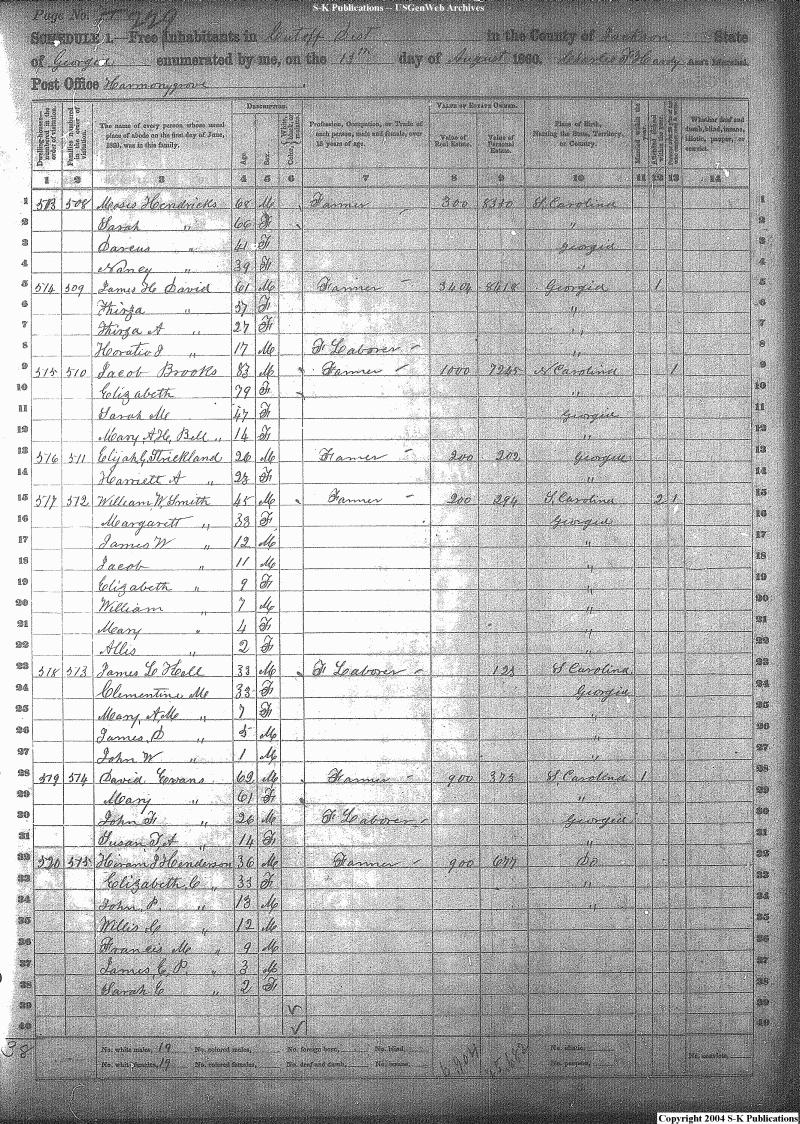 S-K Publications -- USGenWeb Archives
Page No. 229
SCHEDULE 1.—Free Inhabitants in Cutoff Dist in the County of Jackson State
of Georgia enumerated by me, on the 13th day of August 1860. Charles T Hardy Ass't Marshal.
Post Office Harmonygrove
DESCRIPTION. VALUE OF ESTATE OWNED.
Dwelling-houses—numbered in the order of visitation. Families numbered in the order of visitation. The name of every person whose usual place of abode on the first day of June, 1860, was in this family. Age. Sex. Color, White, black, or mulatto. Profession, Occupation, or Trade of each person, male and female, over 15 years of age. Value of Real Estate. Value of Personal Estate. Place of Birth, Naming the State, Territory, or Country. Married within the year. Whether deaf and dumb, blind, insane, idiotic, pauper, or convict.
1 2 3 4 5 6 7 8 9 10 11 12 13 14
1 508 Moses Hendricks 68 M Farmer 300 S. Carolina 1
2 Sarah " 66 F " 2
3 Darcus " 41 F Georgia 3
4 Nancy " 39 F " 4
5 514 509 James H David 61 M Farmer 3404 8418 Georgia 1 5
6 Thirza " 57 F " 6
7 Thirza A " 27 F " 7
8 Horatio J " 17 M F Laborer " 8
9 515 510 Jacob Brooks 83 M Farmer 1000 7245 N Carolina 1 9
10 Elizabeth 79 F " 10
11 Sarah M 47 F Georgia 11
12 Mary A. H. Bell " 14 F " 12
13 516 511 Elijah G Strickland 26 M Farmer 200 202 Georgia 13
14 Harriett A " 23 F " 14
15 517 512 William W. Smith 45 M Farmer 200 294 S. Carolina 2 1 15
16 Margarett " 33 F Georgia 16
17 James W " 12 M " 17
18 Jacob " 11 M " 18
19 Elizabeth " 9 F " 19
20 William " 7 M " 20
21 Mary " 4 F " 21
22 Allis " 2 F " 22
23 518 513 James L Hall 33 M F Laborer 123 S Carolina 23
24 Clementine M 33 F Georgia 24
25 Mary A. M " 7 F " 25
26 James D " 5 M " 26
27 John W " 1 M " 27
28 519 514 David Evans 69 M Farmer 900 375 S. Carolina 1 28
29 Mary " 61 F " 29
30 John F " 26 M F Laborer Georgia 30
31 Susan T A " 14 F " 31
32 520 515 Hiram J Henderson 36 M Farmer 900 677 Do 32
33 Elizabeth C " 33 F " 33
34 John P. " 13 M " 34
35 Willis C " 12 M 35
36 Francis M " 9 M 36
37 James C. P. " 3 M 37
38 Sarah E " 2 F 38
39 39
40 40
38 No. white males, 19 No. colored males, No. foreign born, No. blind, No. idiotic, No. convicts,
No. white females, 19 No. colored females, No. deaf and dumb, No. insane, No. paupers,
Copyright 2004 S-K Publications